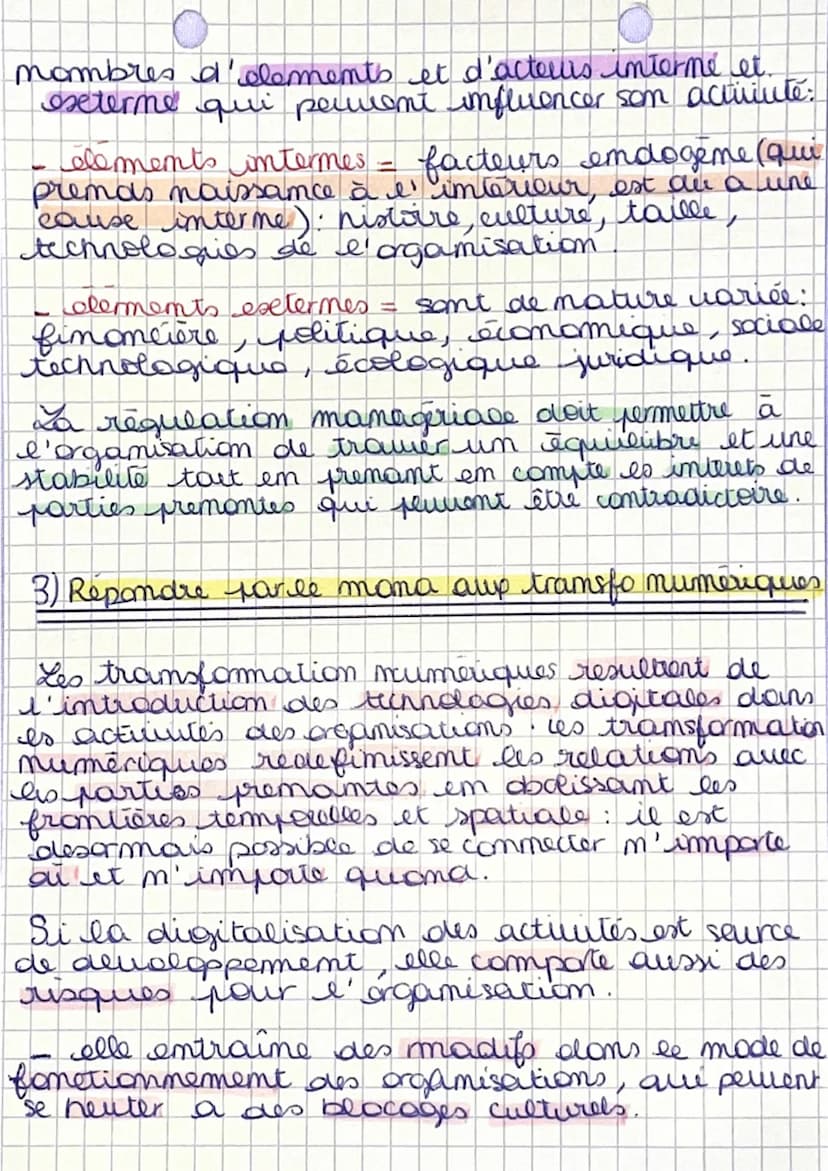 nombres d'elements et d'acteurs interne et
externe qui peuvent influencer son activité:
- éléments internes = facteurs endogène (qui
prends naissance à l'intérieur, est dû a une
cause interne): histoire, culture, taille,
technologies de l'organisation.
- elements externes = sont de nature variée:
financière, politique, économique, sociale
technologique, écologique juridique.
La régulation managériale doit permettre à
l'organisation de trouver un équilibre et une
stabilité tout en prenant en compte les interets de
parties prenantes qui peuvent être contradictoire.
3) Répondre par le mana aux transfo numériques
Les transformation numériques resultent de
l'introduction des technologies digitales dans
les activités des organisations. les transformation
numériques redefinissent les relations avec
les parties prenantes en abolissant les
frontières temporelles et spatiale: il est
desormais possible de se connecter n'importe
où et n'importe quand.
Si la digitalisation des activités est source
de developpement, elle comporte aussi des
risques pour l'organisation.
- elle entraîne des modifs dans le mode de
fonctionnement des organisations, qui peuvent
se heuter a des blocages culturels.